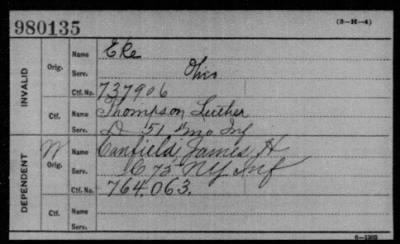 980135 (3-H-4)
INVALID
Orig. Name Eke
Serv. Ohio
Ctf. No. 737906
Ctf. Name Thompson, Luther
Serv. D 51 Mo Inf
DEPENDENT
W Orig. Name Canfield, James H
Serv. 72 NY Inf
Ctf. No. 764,063.
Ctf. Name
Serv.